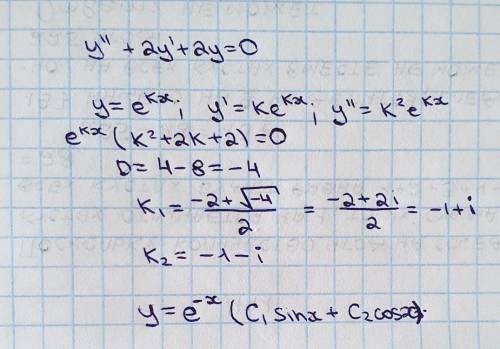 y'' + 2y' + 2y = 0
y = e^{kx}; y' = ke^{kx}; y'' = k²e^{kx}
e^{kx}(k² + 2k + 2) = 0
D = 4 - 8 = -4
k₁ = \frac{-2 + \sqrt{-4}}{2} = \frac{-2 + 2i}{2} = -1 + i
k₂ = -1 - i
y = e^{-x}(C₁ sinx + C₂ cosx).